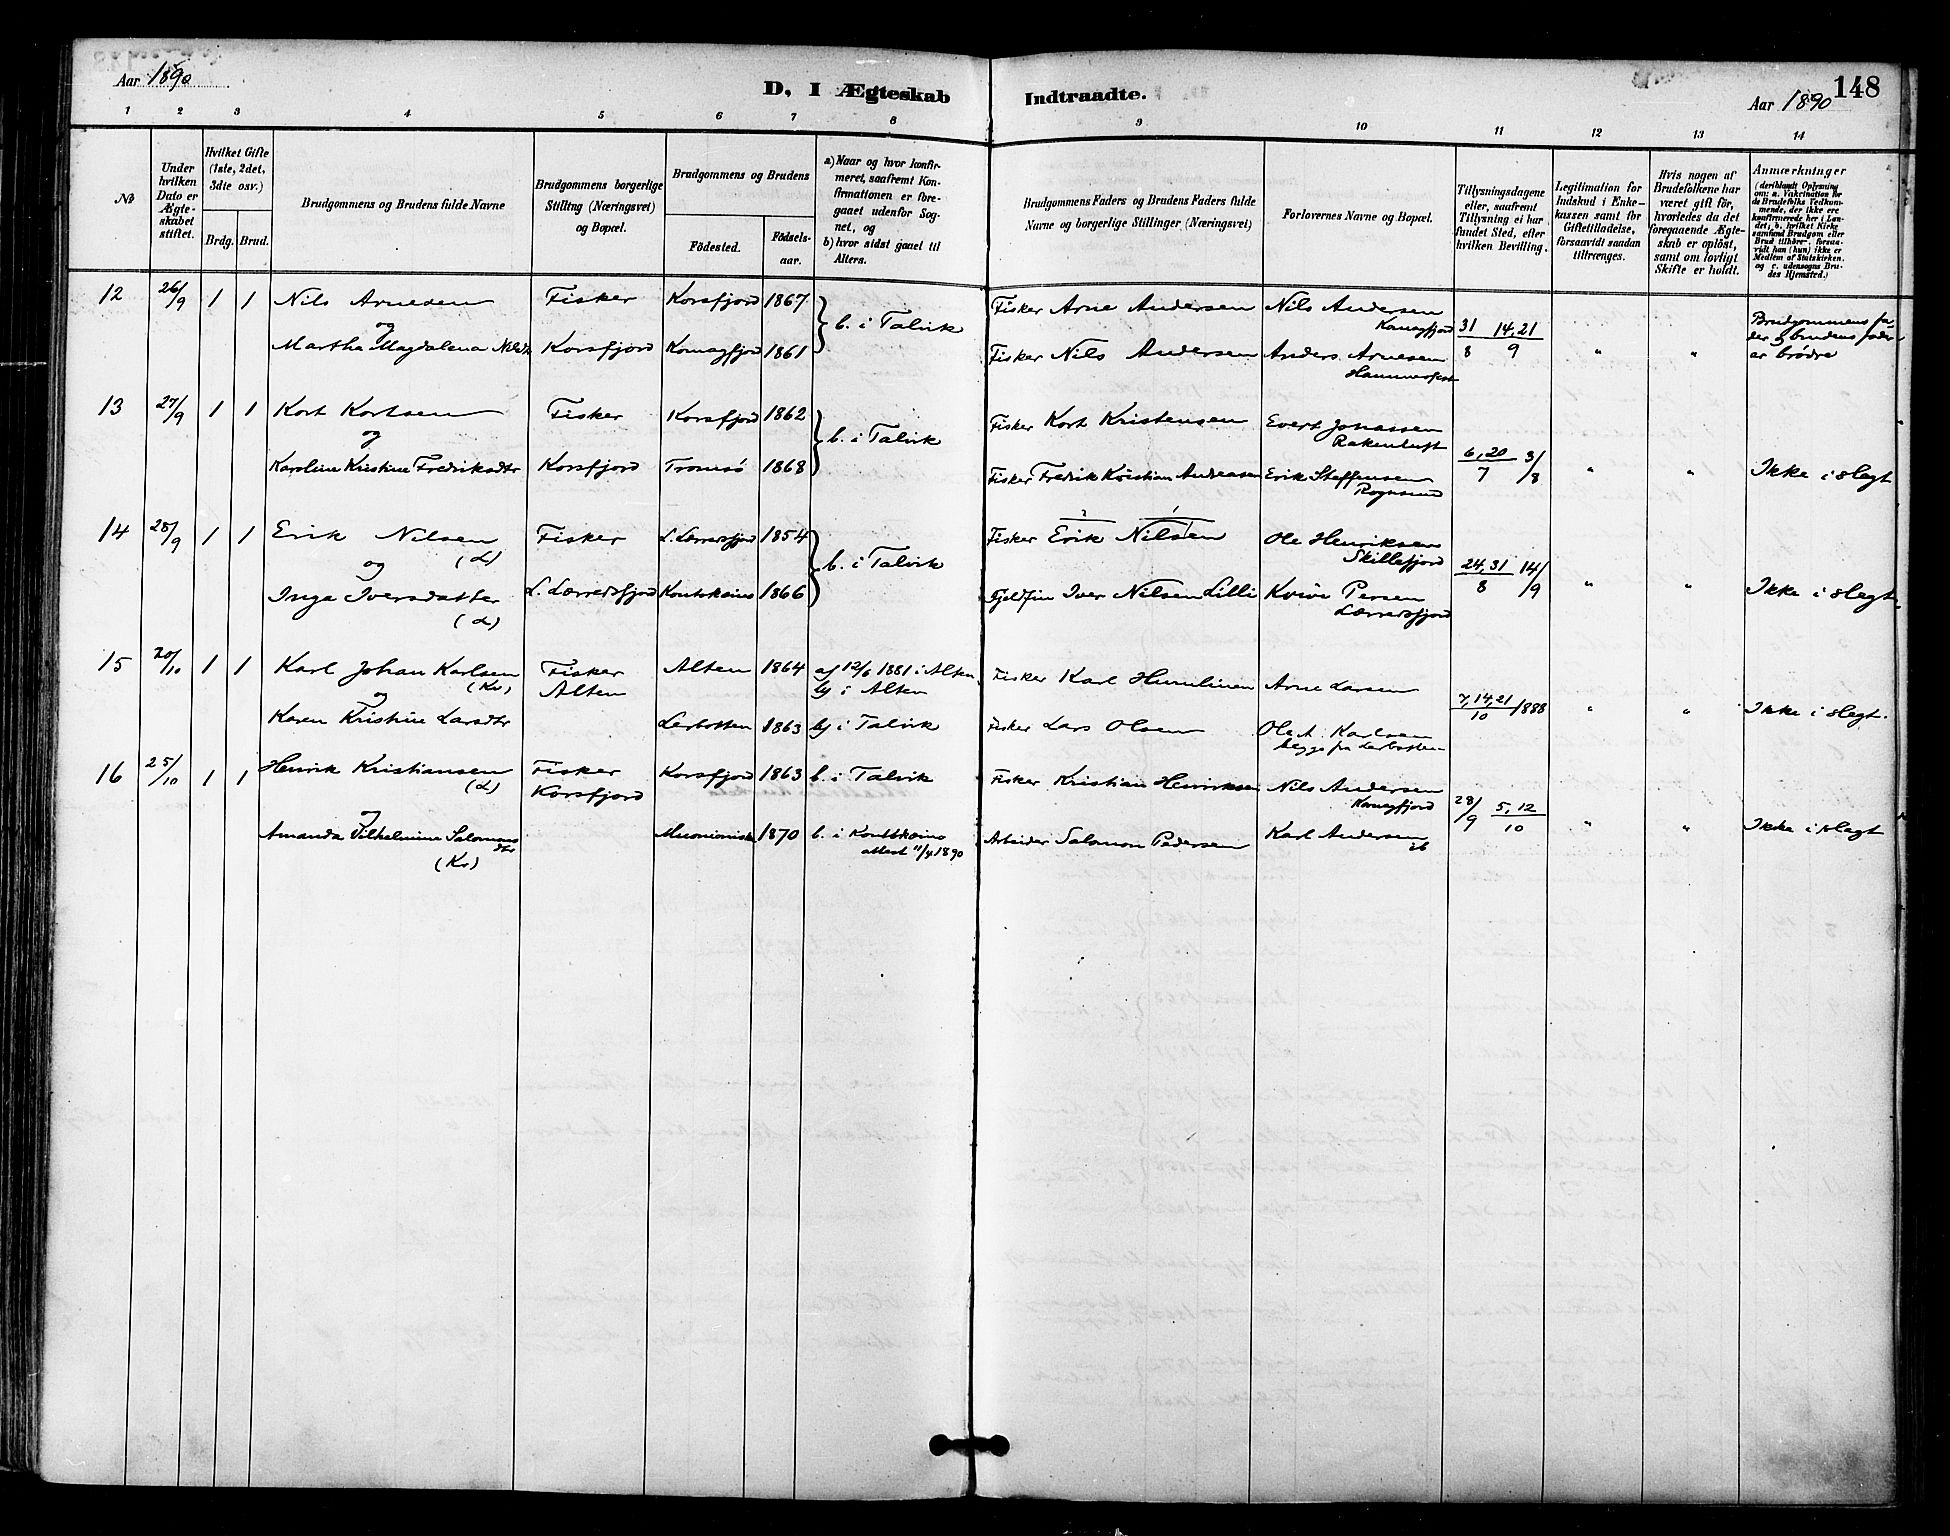 Aar 1890
D. I Ægteskab
Indtraadte.
148
Aar 1890
1 2 3 4 5 6 7 8 9 10 11 12 13 14
No
Under hvilken Dato er Ægteskabet stiftet.
Hvilket Gifte (1ste, 2det, 3dte osv.)
Brdg. Brud.
Brudgommens og Brudens fulde Navne
Brudgommens borgerlige Stilling (Næringsvei) og Bopæl.
Brudgommens og Brudens
Fødested. Fødsels-aar.
a) Naar og hvor konfirmeret, saafremt Konfirmationen er foregaaet udenfor Sognet, og
b) hvor sidst gaaet til Alters.
Brudgommens Faders og Brudens Faders fulde Navne og borgerlige Stillinger (Næringsvei)
Forlovernes Navne og Bopæl.
Tillysningsdagene eller, saafremt Tillysning ei har fundet Sted, efter hvilken Bevilling.
Legitimation for Indskud i Enkekassen samt for Giftetilladelse, forsaavidt saadan tiltrænges.
Hvis nogen af Brudefolkene har været gift før, hvorledes da det foregaaende Ægteskab er opløst, samt om lovligt Skifte er holdt.
Anmærkninger
12 26/9 1 1 Nils Arnesen Fisker Korsfjord 1867 b. i Talvik Fisker Arne Andersen Nils Andersen Komagfjord 31/8 14,21/9 Brudgommens fader og brudens fader er brødre
og
Martha Magdalena Nilsdr Korsfjord Komagfjord 1861 Fisker Nils Andersen Anders Arnesen Hammerfest " "
13 27/9 1 1 Kort Kortsen Fisker Korsfjord 1862 b. i Talvik Fisker Kort Kristensen Evert Jonassen
og
Karoline Kristine Fredriksdtr Korsfjord Tromsö 1868 Fisker Fredrik Kristian Andreasen Erik Steffensen Rognsund 6,20/7 3/8 " " Ikke i slegt
14 28/9 1 1 Erik Nilsen (L) Fisker L. Lærredsfjord 1854 b. i Talvik Fisker Erik Nilsen Ole Henriksen Skillefjord 24,31/8 14/9
og
Inga Iversdatter (L) L. Lærredsfjord Koutokeino 1866 Fjeldfin Iver Nilsen Lilli Kvive Persen Lærredsfjord " " Ikke i slegt.
15 20/10 1 1 Karl Johan Karlsen (Kv) Fisker Alten Alten 1864 a) 12/6 1881 i Alten. b) i Alten Fisker Karl Hunlinen Arne Larsen 7,14,21/10 1888 " " Ikke i slegt.
og
Karen Kristine Larsdtr Lerbotten 1863 b) i Talvik Fisker Lars Olsen Ole A. Karlsen begge fra Lerbotten
16 25/10 1 1 Henrik Kristiansen (L) Fisker Korsfjord Korsfjord 1863 b. i Talvik Fisker Kristian Henriksen Nils Andersen Komagfjord 28/9 5,12/10
og
Amanda Vilhelmine Salomonsdtr (Kv) Muonionisk 1870 b. i Koutokeino attest 11/4 1890 Arbeider Salomon Pedersen Karl Andersen ib " " Ikke i slegt